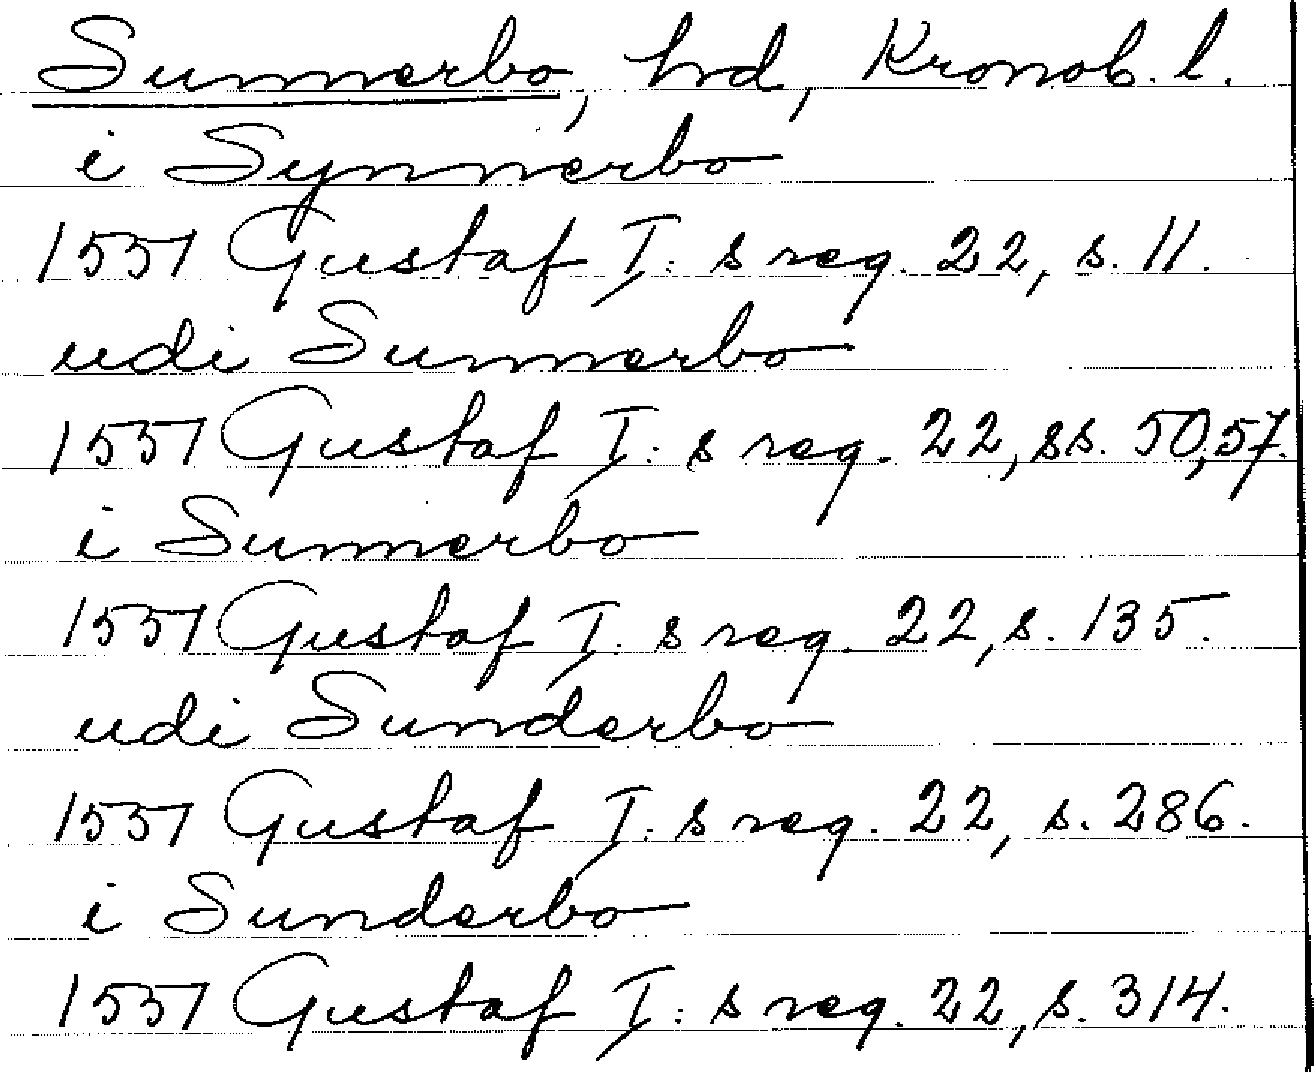 Sunnerbo, hd, Kronob. l.
i Synnerbo
1551 Gustaf I: s reg. 22, s. 11.
udi Sunnerbo
1551 Gustaf I: s reg. 22, ss. 50,57.
i Sunnerbo
1551 Gustaf I: s reg. 22, s. 135.
udi Sunderbo
1551 Gustaf I: s reg. 22, s. 286.
i Sunderbo
1551 Gustaf I: s reg. 22, s. 314.